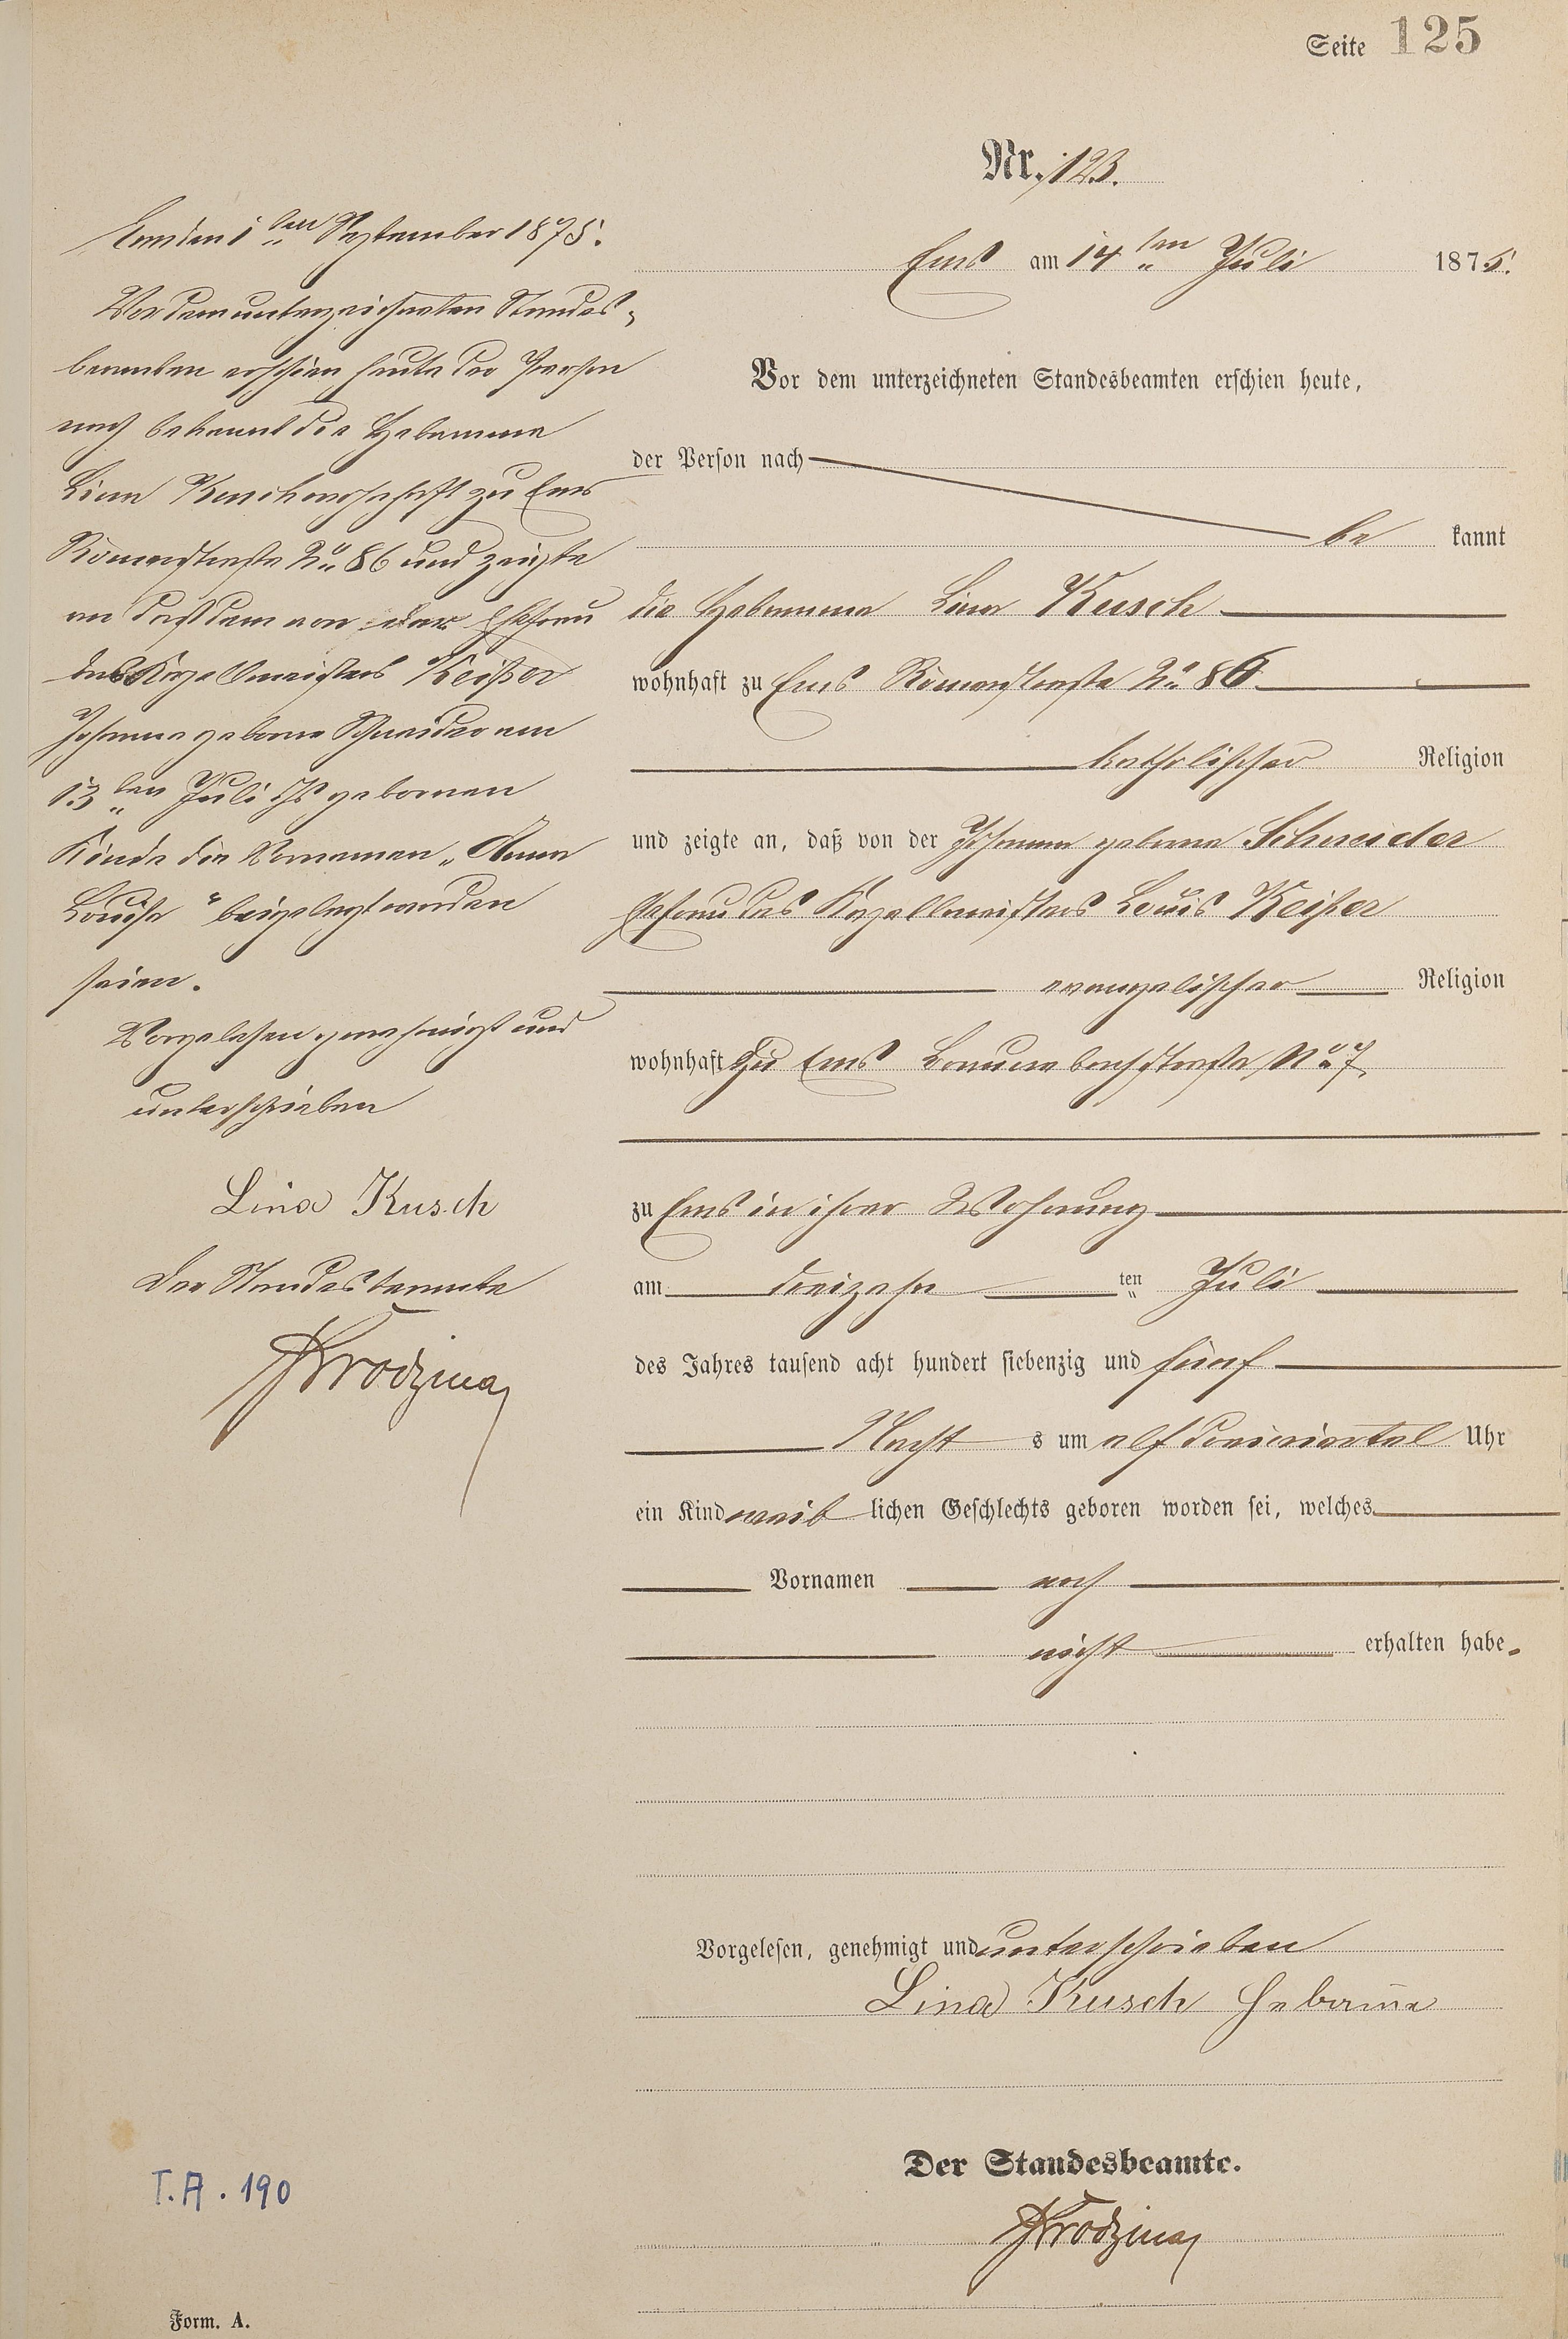 Seite 125
Nr. 123.
Ems am 14ten Juli 1875.
Vor dem unterzeichneten Standesbeamten erschien heute,
der Person nach
be kannt
die Hebamme Lina Kusch
wohnhaft zu Ems Römerstraße No 86
katholischer Religion
und zeigte an, daß von der Johanna geborne Schneider
Ehefrau des Kapellmeisters Louis Keißer
evangelischer Religion
wohnhaft zu Ems Braunebachstraße No 7.
zu Ems in ihrer Wohnung
am dreizehn ten Juli
des Jahres tausend acht hundert siebenzig und fünf
Nacht s um elf dreiviertel Uhr
ein Kind weib lichen Geschlechts geboren worden sei, welches
Vornamen noch
nicht erhalten habe.
Vorgelesen, genehmigt und unterschrieben
Lina Kusch Hebamme
Der Standesbeamte.
Ems den 1ten September 1875.
Vor dem unterzeichneten Standes-
beamten erschien heute der Person
nach bekannt die Hebamme
Lina Kusch wohnhaft zu Ems
Römerstraße No 86 und zeigte
an daß dem von der Ehefrau
des Kapellmeisters Keißer
Johanna geborne Schneider am
13ten Juli gebornen
Kinde die Vornamen „Anna
Louise" beigelegt worden
seien.
Vorgelesen genehmigt und
unterschrieben
Lina Kusch
Der Standesbeamte
T.A. 190
Form. A.